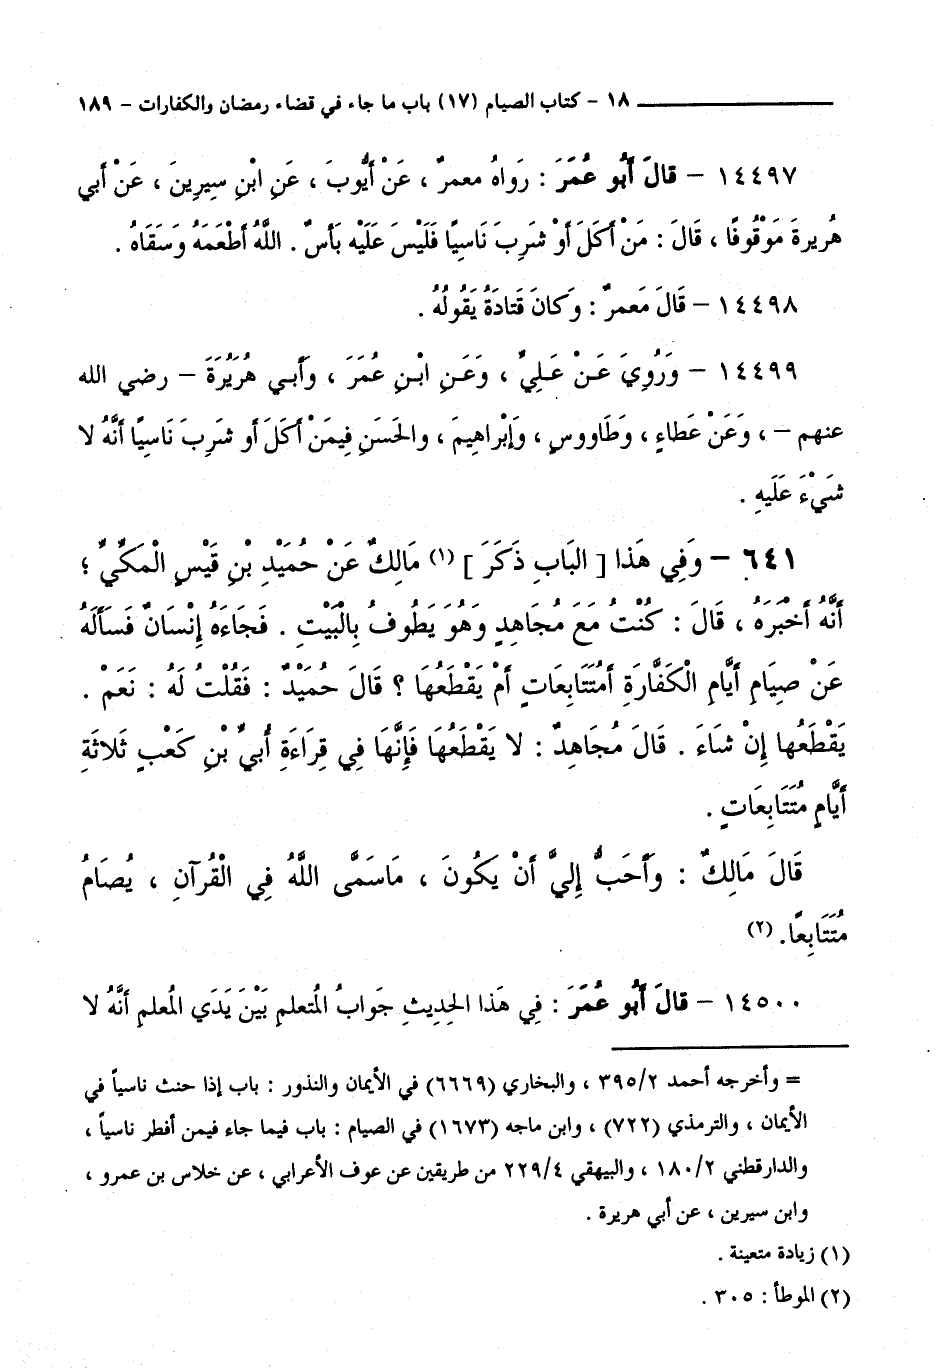 ١٨ - كتاب الصيام (١٧) باب ما جاء في قضاء رمضان والكفارات - ١٨٩
١٤٤٩٧ - قالَ أَبُو عُمَرَ : رَوَاهُ معمرٌ ، عَنْ أَيُّوبَ ، عَنِ ابْنِ سِيرِينَ ، عَنْ أَبي
هُرِيرةَ مَوْقُوفًا ، قَالَ : مَنْ أَكَلَ أَوْ شَرِبَ نَاسِيًا فَلَيْسَ عَلَيْهِ بَأسٌ . اللَّهُ أَطْعَمَهُ وَسَقَاهُ .
١٤٤٩٨ - قَالَ مَعمرٌ : وَكانَ قَتَادَةُ يَقُولُهُ .
١٤٤٩٩ - وَرُوِيَ عَنْ عَلِيٍّ ، وَعَنِ ابْنِ عُمَرَ ، وَأَبي هُرَيْرَةَ - رضي الله
عنهم - ، وَعَنْ عَطَاءٍ ، وَطَاووسٍ ، وَإِبْراهِيمَ ، والحَسَنِ فِيمَنْ أَكَلَ أَو شَرِبَ نَاسِيًا أَنَّهُ لا
شَيْءَ عَلَيهِ .
٦٤١ - وَفِي هَذا [ البَابِ ذَكَرَ ] (١) مَالِكٌ عَنْ حُمَيْدِ بْنِ قَيْسٍ الْمَكِّيِّ ؛
أَنَّهُ أَخْبَرَهُ ، قَالَ : كُنْتُ مَعَ مُجَاهِدٍ وَهُوَ يَطُوفُ بِالْبَيْتِ . فَجَاءَهُ إِنْسَانٌ فَسَأَلَهُ
عَنْ صِيَامِ أَيَّامِ الْكَفَّارَةِ أَمُتَتَابِعَاتٍ أَمْ يَقْطَعُهَا ؟ قَالَ حُمَيْدٌ : فَقُلْتُ لَهُ : نَعَمْ .
يَقْطَعُهَا إِنْ شَاءَ . قَالَ مُجَاهِدٌ : لا يَقْطَعُهَا فَإِنَّهَا فِي قِرَاءَةِ أُبَيِّ بْنِ كَعْبٍ ثَلاثَةِ
أَيَّامٍ مُتَتَابِعَاتٍ .
قَالَ مَالِكٌ : وَأَحَبُّ إِلَيَّ أَنْ يَكُونَ ، مَاسَمَّى اللَّهُ فِي الْقُرآنِ ، يُصَامُ
مُتَتَابِعًا. (٢)
١٤٥٠٠ - قالَ أَبُو عُمَرَ : فِي هَذا الحَدِيثِ جَوابُ المُتعلمِ بَيْنَ يَدَي المُعلمِ أَنَّهُ لا
= وأخرجه أحمد ٣٩٥/٢ ، والبخاري (٦٦٦٩) في الأيمان والنذور : باب إذا حنث ناسياً في
الأيمان ، والترمذي (٧٢٢) ، وابن ماجه (١٦٧٣) في الصيام : باب فيما جاء فيمن أفطر ناسياً ،
والدارقطني ١٨٠/٢ ، والبيهقي ٢٢٩/٤ من طريقين عن عوف الأعرابي ، عن خلاس بن عمرو ،
وابن سيرين ، عن أبي هريرة .
(١) زيادة متعينة .
(٢) الموطأ : ٣٠٥ .